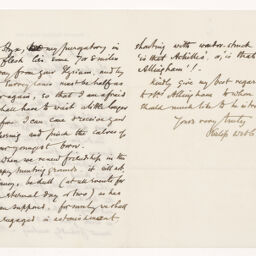 Styx, my purgatory in
flesh lies some 70 or 80 miles
from your Elysium, and by
Surrey lanes must be half as
again, so that I am afraid
shall have to wait while longer
before I can receive your
blessing and pinch the calves of
your youngest born.
When we renew friendship in the
happy hunting grounds, it will all,
be dull (at all events for
eternal day or two) as has
been supposed, for surely we shall
engaged in astonishment
shaking with wonder-struck
'is that Achilles, or, is that
Allingham'!
Kindly give my best regards
to Mrs. Allingham to whom
should much like to be
Yours very truly,
Philip Webb